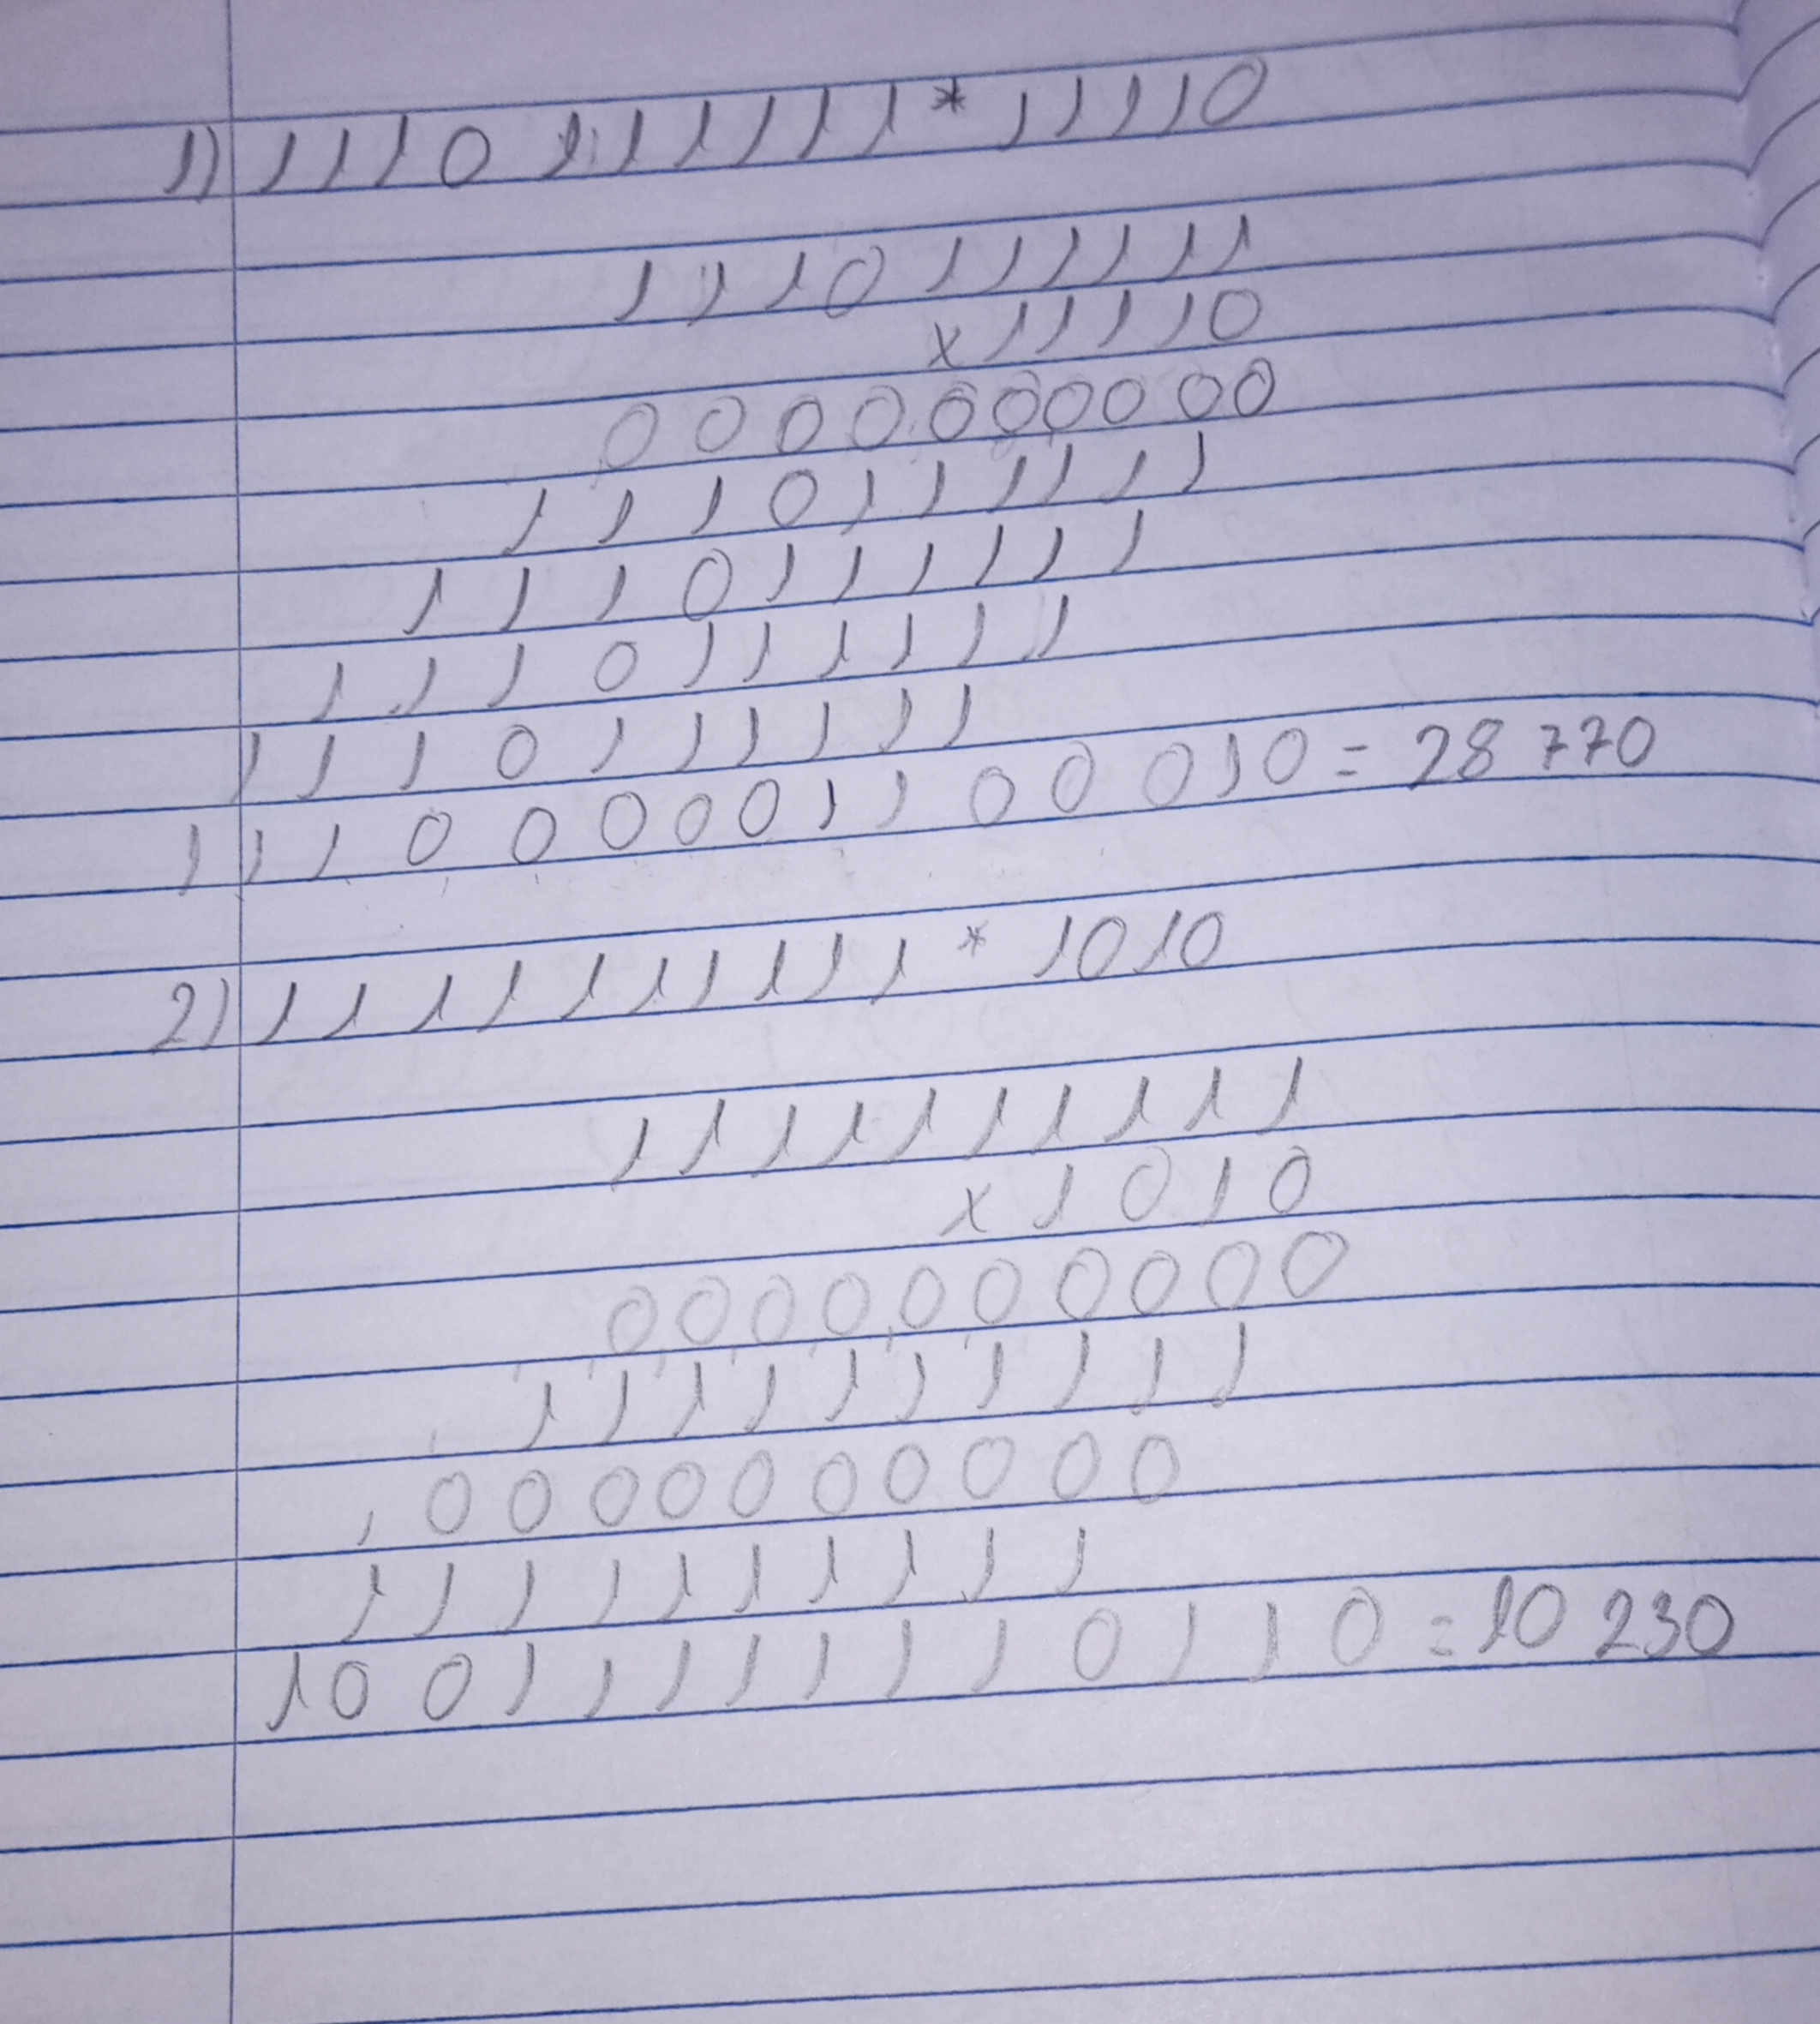 1) 1110111111 * 11110
1110111111
x11110
0000000000
1110111111
1110111111
1110111111
1110111111
111000001100010 = 28 770
2) 1111111111 * 1010
1111111111
x1010
0000000000
1111111111
0000000000
1111111111
10011111110110 = 10 230